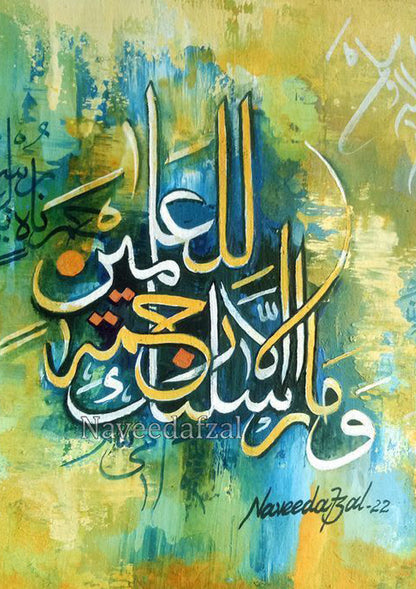 وما أرسلنك إلا رحمة
للعلمين
Naveedafzal
Naveedafzal-22